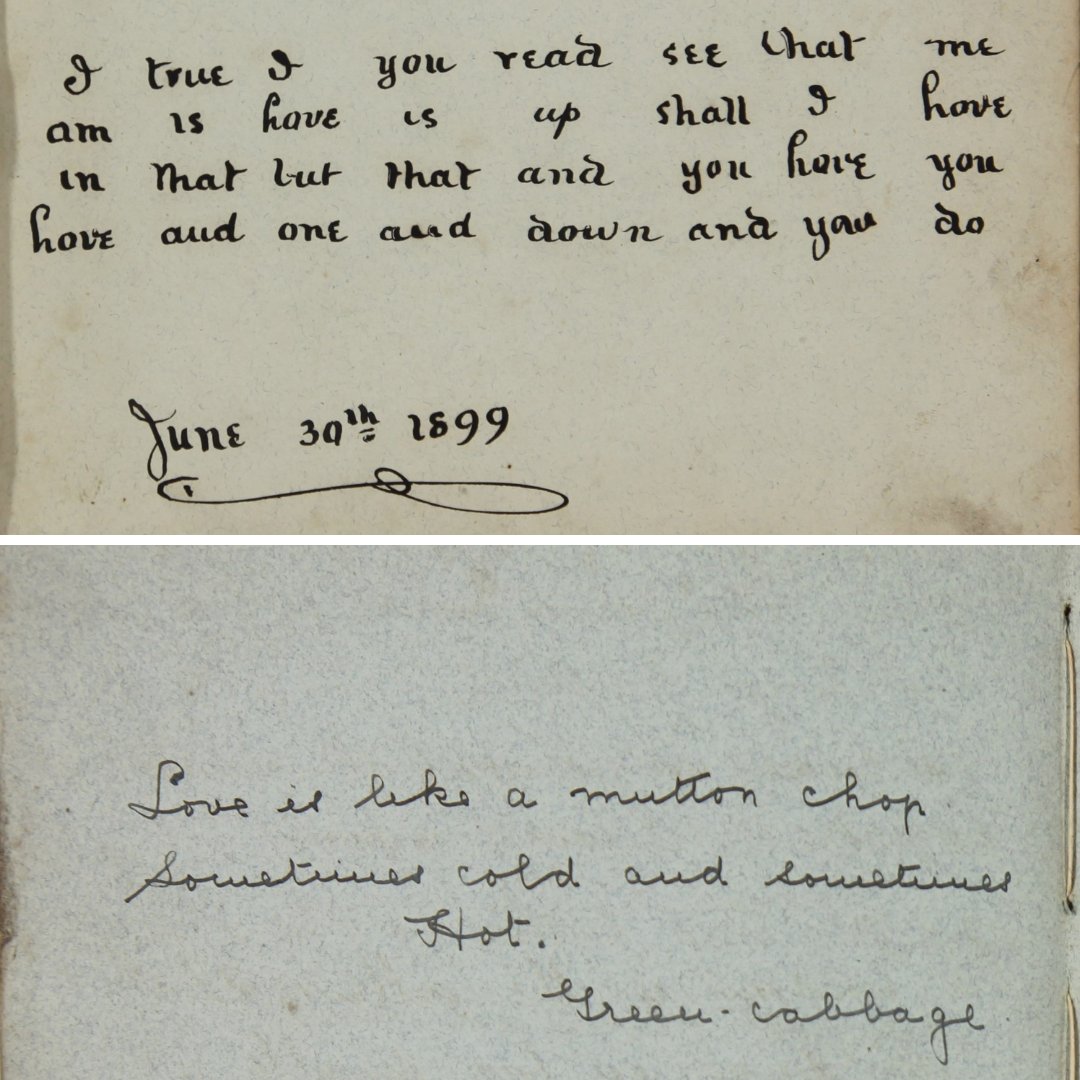 I true I you read see that me
am is love is up shall I love
in that but that and you love you
love and one and down and you do
June 30th 1899
Love is like a mutton chop
Sometimes cold and sometimes
Hot.
Green-cabbage